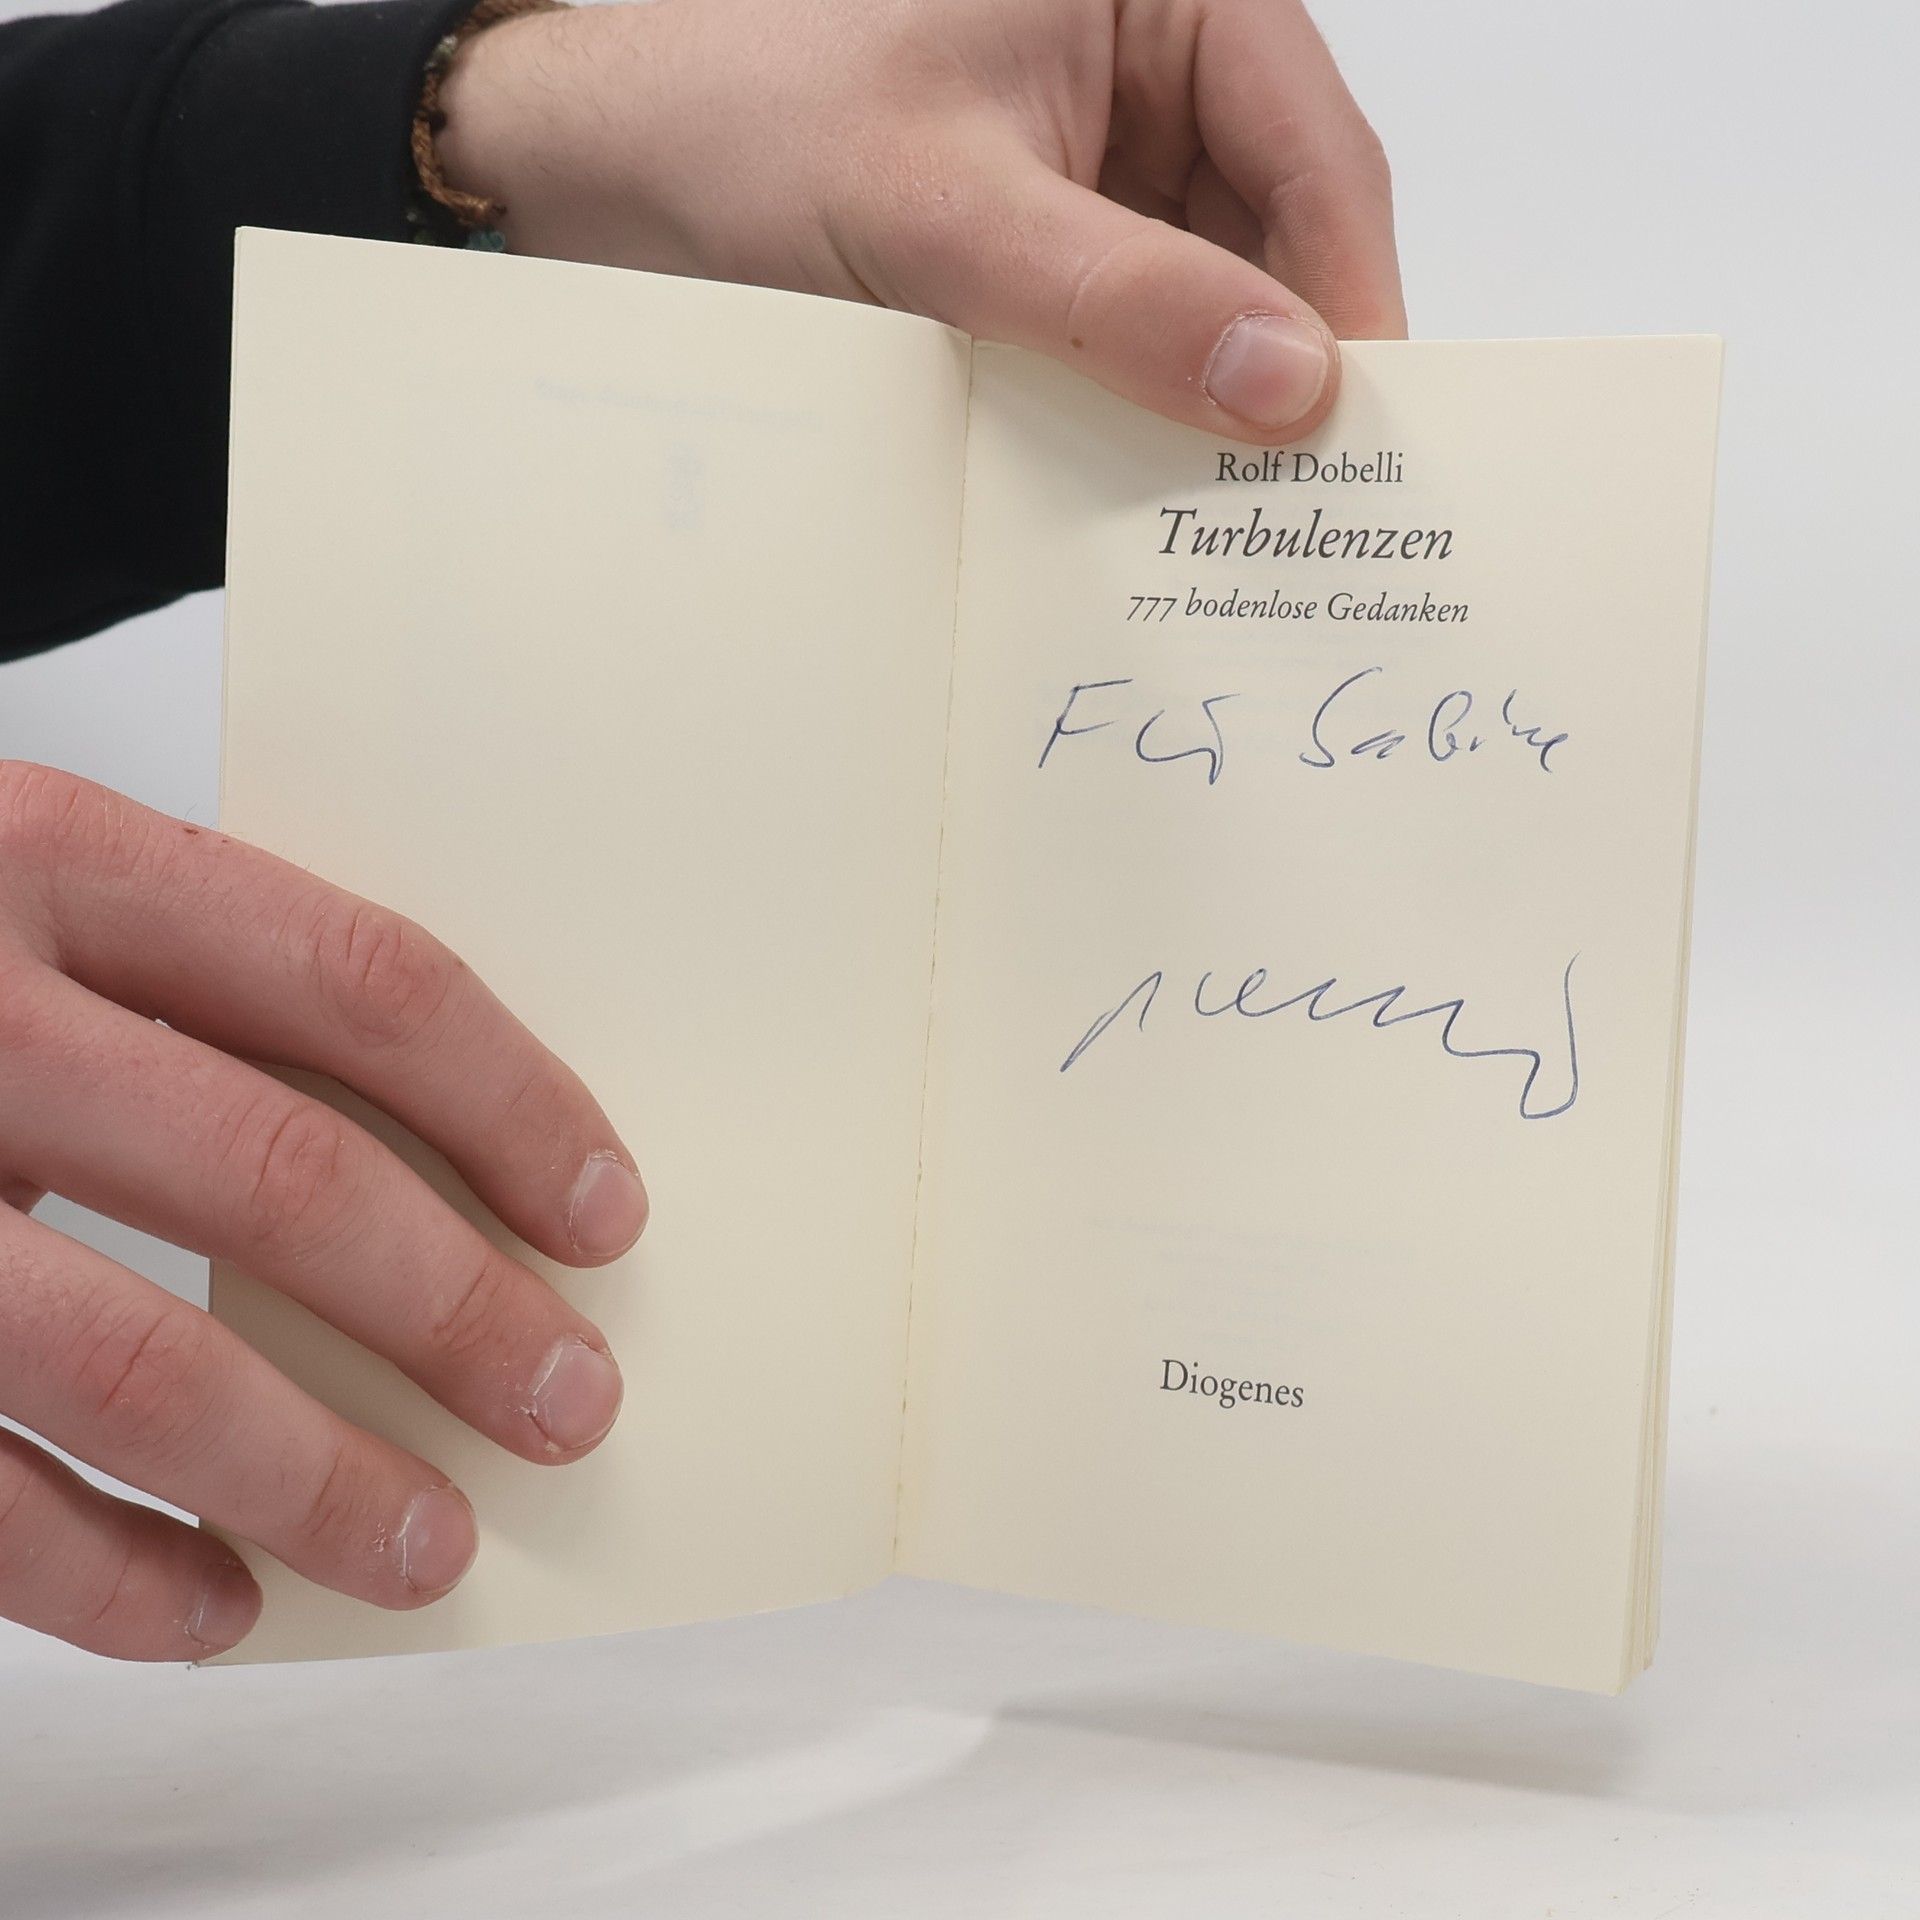 Rolf Dobelli
Turbulenzen
777 bodenlose Gedanken
Für Sabine
Diogenes